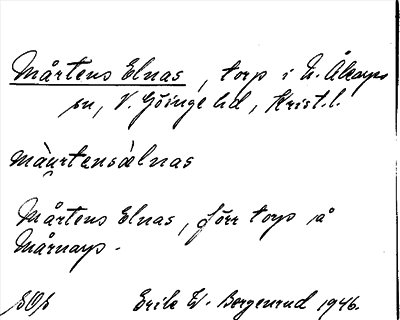 Mårtens Elnas, torp i N. Åkarps
sn, V. Göinge hd, Krist. l.
màurtensàlnas
Mårtens Elnas, förr torp å
Mårnarp.
Erik W. Bergenrud 1946.